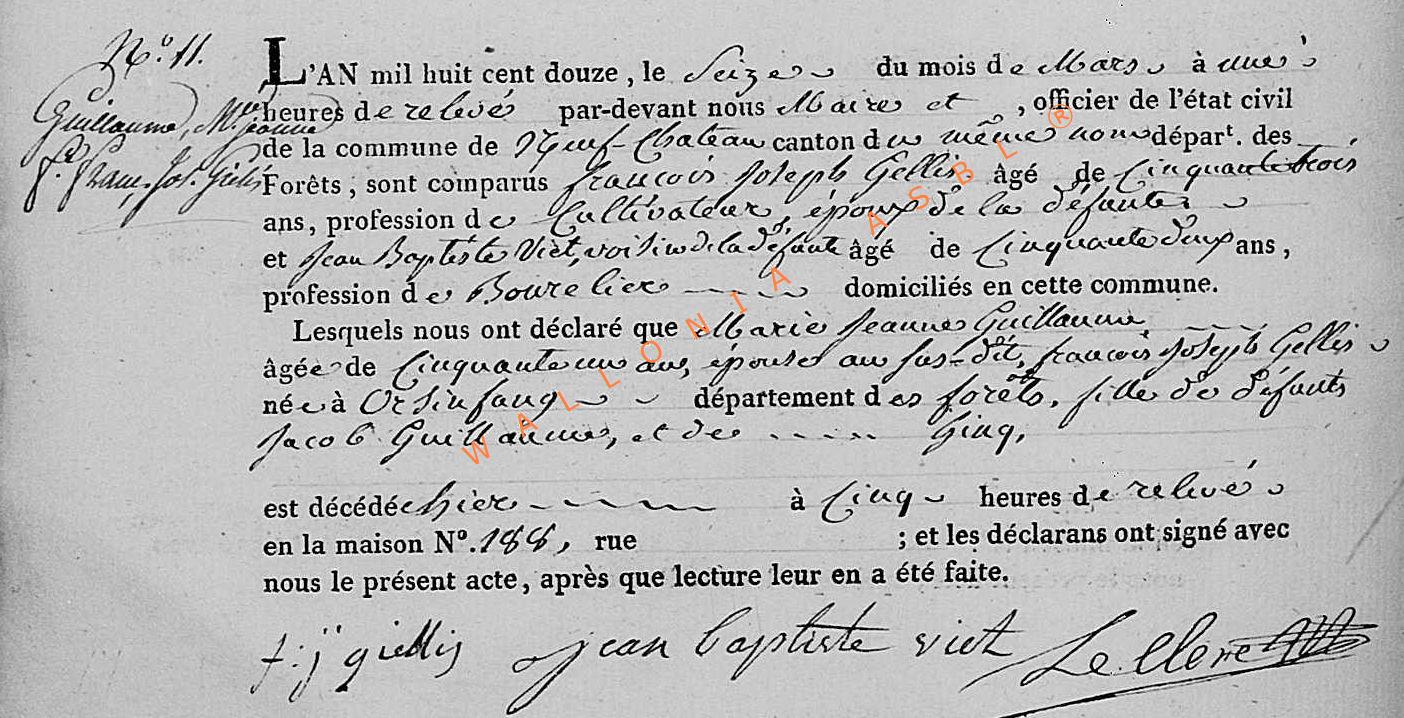 N.° 11.
Guillaume, M.ie Jeanne
f.e
f. franc. Jos. Gielis
L'AN mil huit cent douze, le Seize du mois de Mars à une
heures de relevé par-devant nous Maire et , officier de l'état civil
de la commune de Neuf-Chateau canton du même nom départ. des
Forêts, sont comparus françois Joseph Gellis âgé de Cinquante trois
ans, profession de Cultivateur, époux de la défunte
et Jean Baptiste Viet, voisin de la défunte âgé de Cinquante deux ans,
profession de Bourelier domiciliés en cette commune.
Lesquels nous ont déclaré que Marie Jeanne Guillaume
âgée de Cinquante un ans, épouse au sus-dit, françois Joseph Gellis
née à Orsinfang département des forêts, fille de défunts
Jacob Guillaume, et de ..... Ginq,
est décédée hier à Cinq heures de relevé
en la maison N°. 188, rue ; et les déclarans ont signé avec
nous le présent acte, après que lecture leur en a été faite.
f: j: giellis jean baptiste viet Le Clerc
WALLONIA ASBL ®